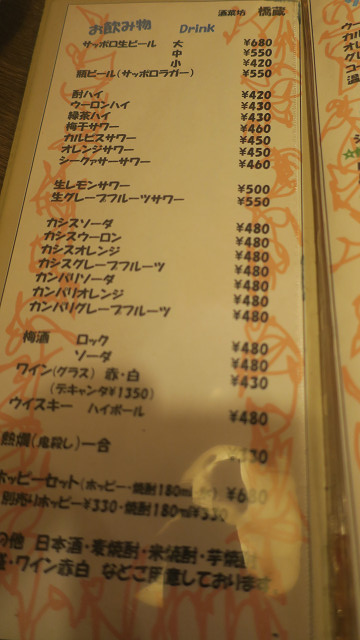 酒菜坊 橋蔵
お飲み物 Drink
サッポロ生ビール 大 ¥680
中 ¥550
小 ¥420
瓶ビール(サッポロラガー) ¥550
酎ハイ ¥420
ウーロンハイ ¥430
緑茶ハイ ¥430
梅干サワー ¥460
カルピスサワー ¥450
オレンジサワー ¥450
シークァーサーサワー ¥460
生レモンサワー ¥500
生グレープフルーツサワー ¥550
カシスソーダ ¥480
カシスウーロン ¥480
カシスオレンジ ¥480
カシスグレープフルーツ ¥480
カンパリソーダ ¥480
カンパリオレンジ ¥480
カンパリグレープフルーツ ¥480
梅酒 ロック ¥480
ソーダ ¥480
ワイン(グラス) 赤・白 ¥430
(デキャンタ¥1350)
ウイスキー ハイボール ¥480
熱燗(鬼殺し)一合 330
ホッピーセット(ホッピー・焼酎180ml ¥680
別売りホッピー¥330・焼酎180ml¥330
の他 日本酒・麦焼酎・米焼酎・芋焼酎
・ワイン赤白 などご用意しております